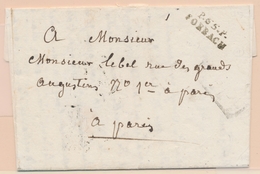 P.55.P.
FORBACH
A Monsieur
Monsieur Lebel rue des grands
augustins No 1er à paris
à paris